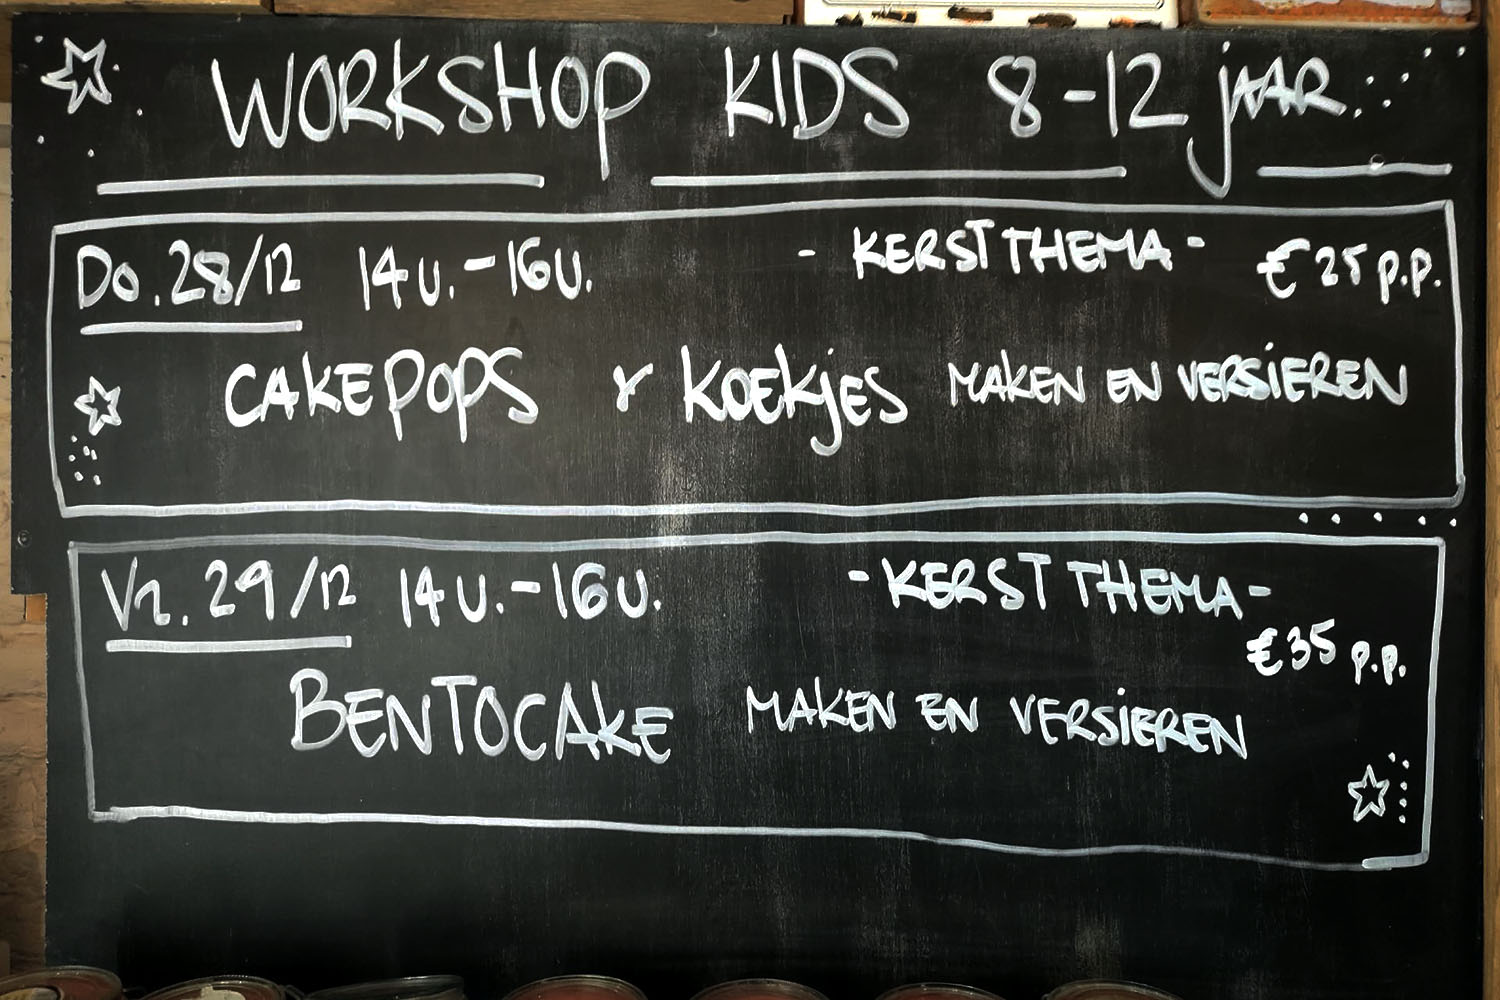 WORKSHOP KIDS 8-12 jAAR
Do. 28/12 14u. - 16u. - KERST THEMA - € 25 p.p.
CAKEPOPS & KOEKjES MAKEN EN VERSIEREN
Vr. 29/12 14u. - 16u. - KERST THEMA -
€35 p.p.
BENTOCAKE MAKEN EN VERSIEREN